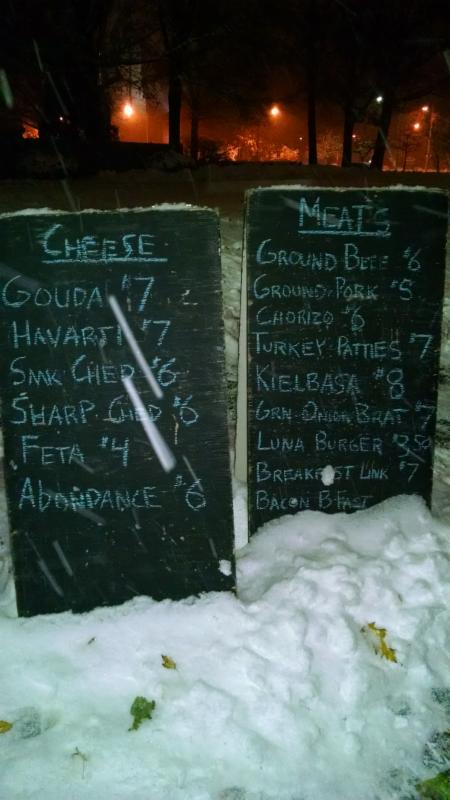 CHEESE
GOUDA $7
HAVARTI $7
SMK CHED $6
SHARP CHED $6
FETA $4
ABONDANCE $6
MEATS
GROUND BEEF $6
GROUND PORK $5
CHORIZO $6
TURKEY PATTIES $7
KIELBASA $8
GRN ONION BRAT $7
LUNA BURGER $3.50
BREAKFAST LINK $7
BACON B-FAST